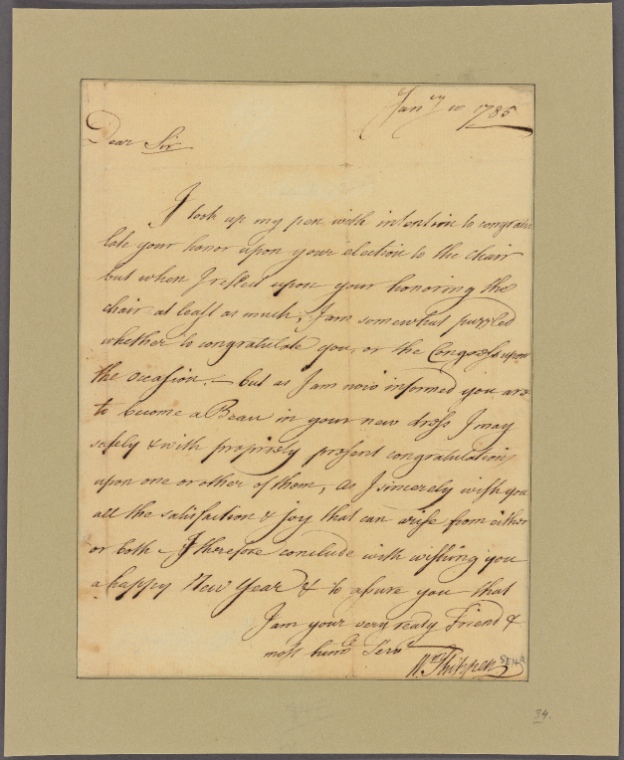 Jan.ry 10 1785
Dear Sir
I took up my pen with intention to congratu
late your honor upon your election to the chair
but when I reflect upon your honoring the
chair at least as much, I am somewhat puzzled
whether to congratulate you, or the Congress upon
the occasion. — but as I am now informed you are
to become a Beau in your new dress I may
safely & with propriety present congratulations
upon one or other of them, as I sincerely wish you
all the satisfaction & joy that can arise from either
or both — I therefore conclude with wishing you
a happy New Year & to assure you that
I am your very ready Friend &
most hum.e Serv.t
W.m Shippen
34.